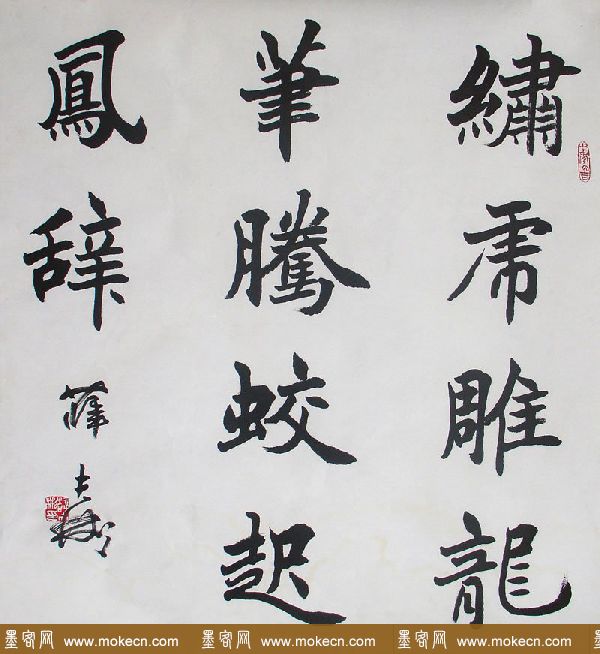 繡虎雕龍
筆騰蛟起
鳳辞
薛
墨客网 www.mokecn.com 墨客网 www.mokecn.com 墨客网 www.mokecn.com